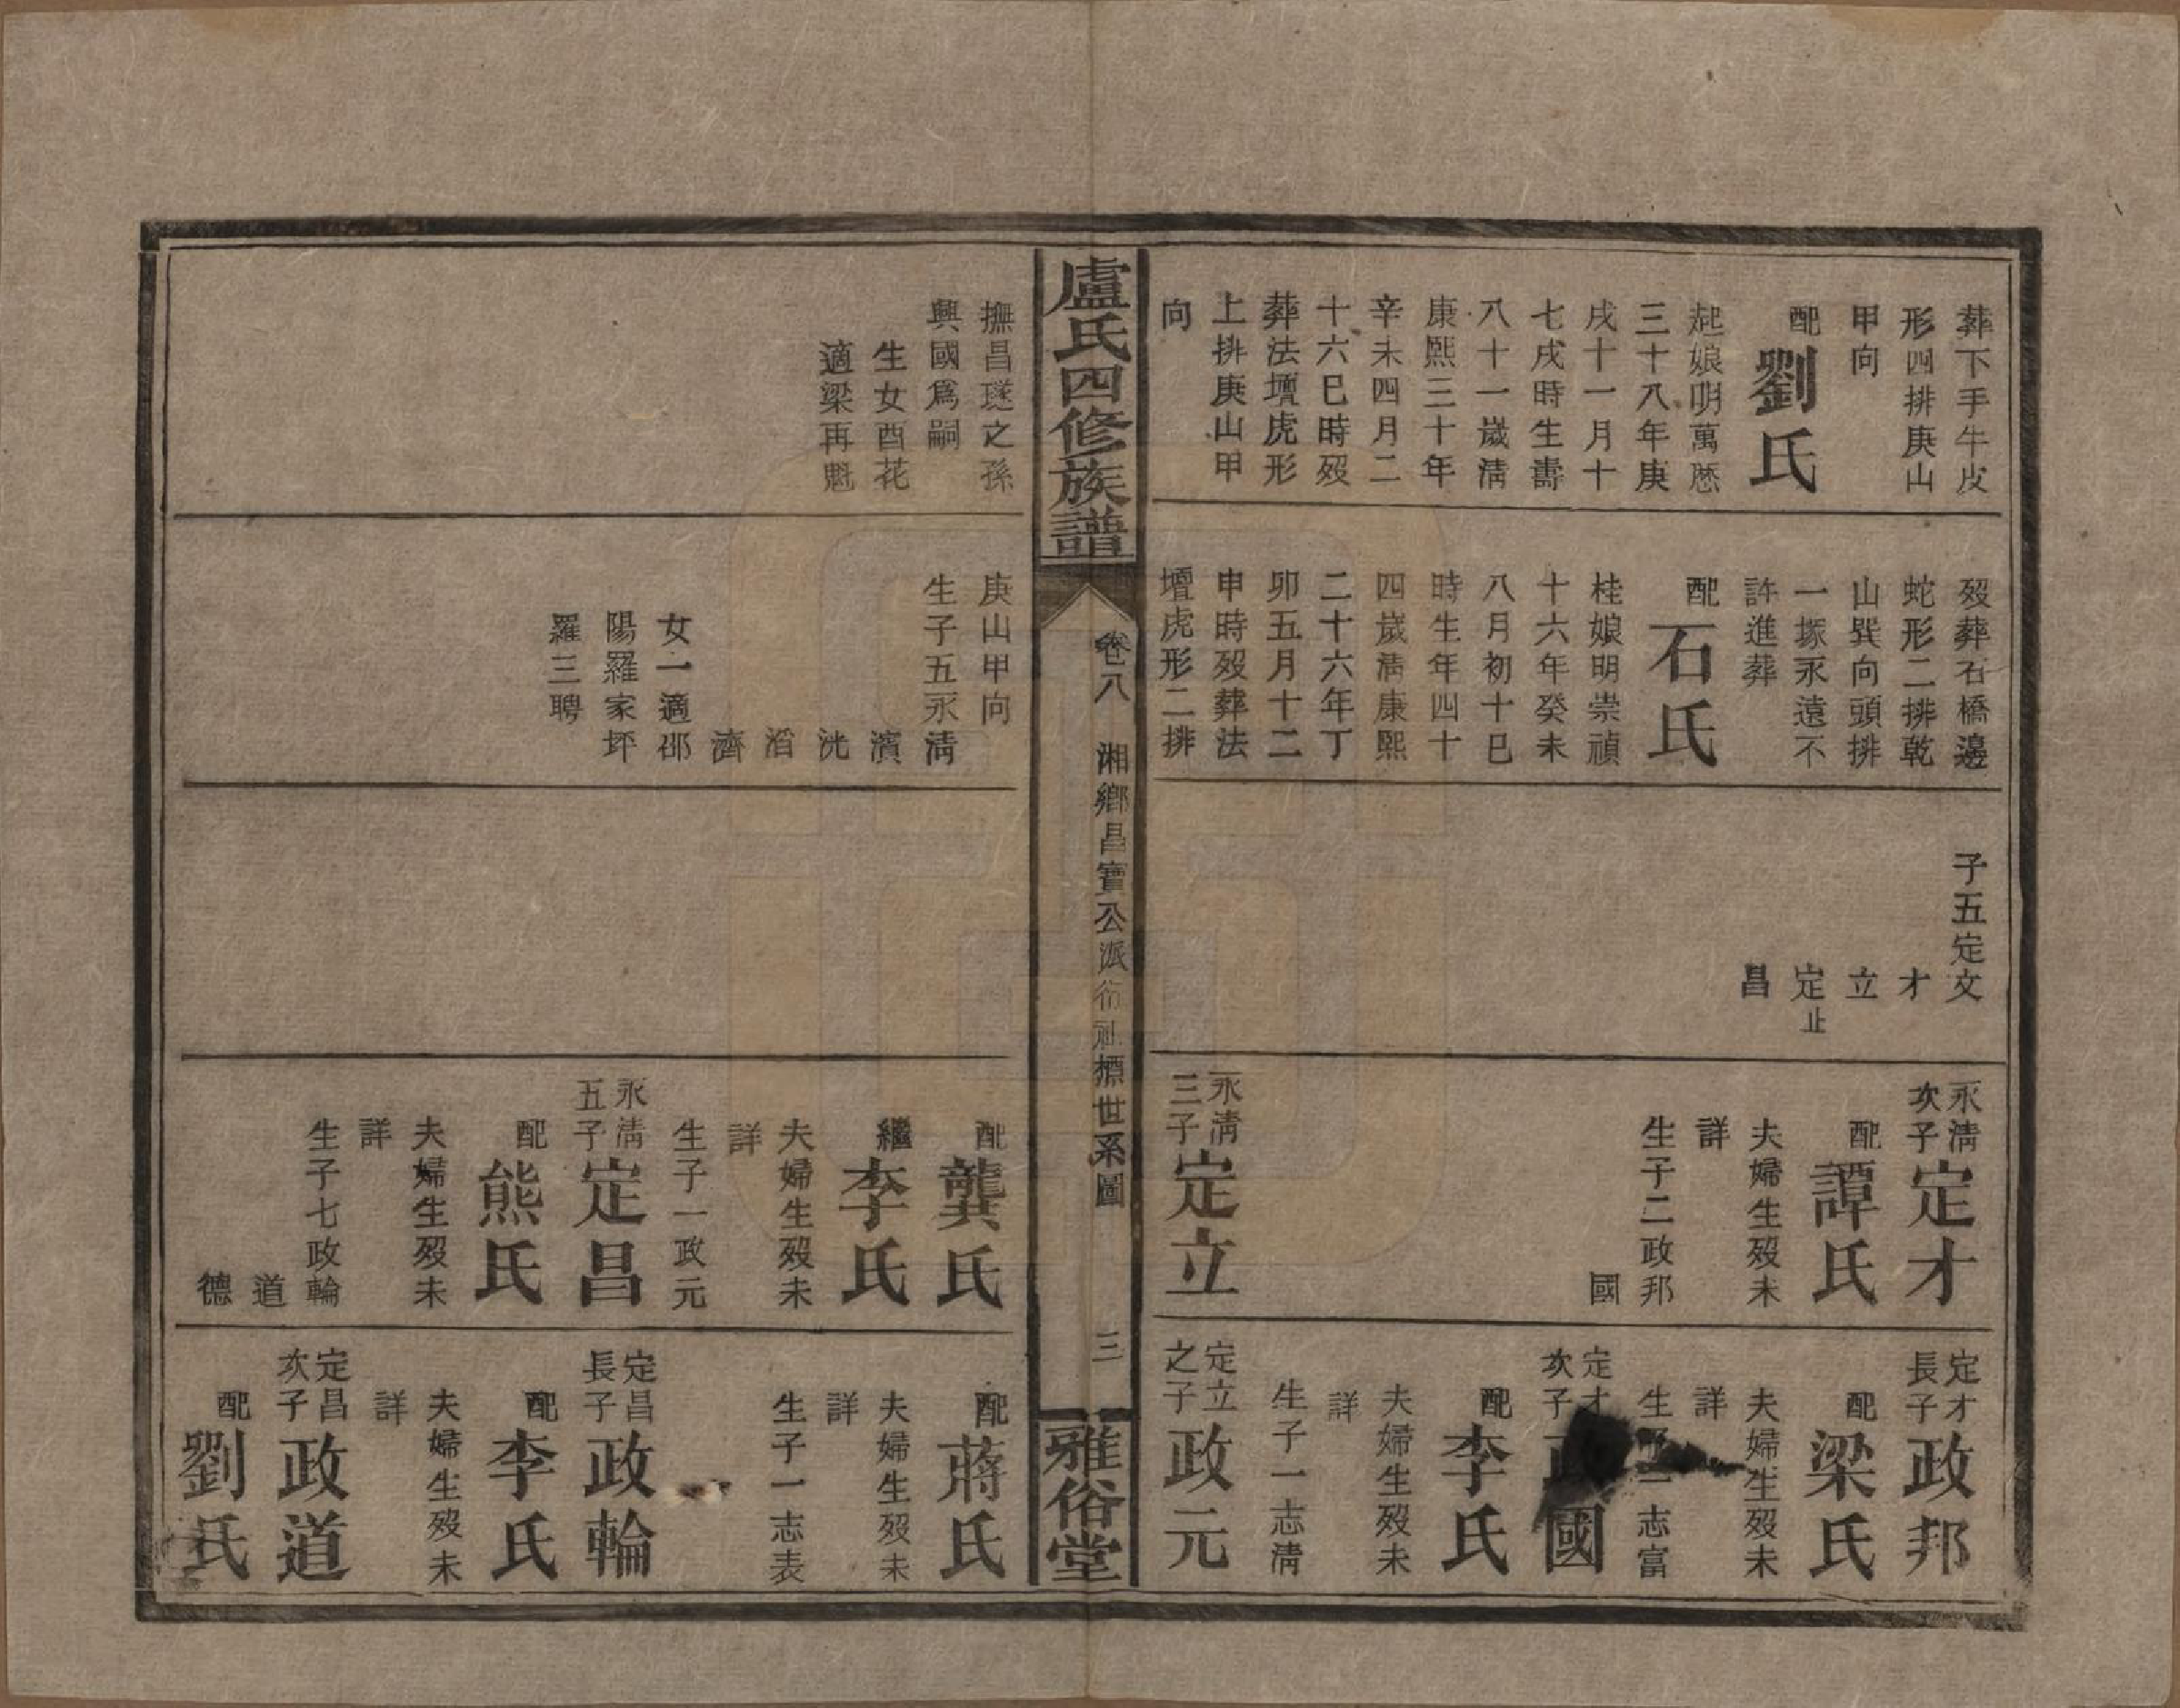 葬下手牛皮
形四排庚山
甲向
配劉氏
起娘明萬厯
三十八年庚
戌十一月十
七戌時生壽
八十一嵗淸
康熙三十年
辛未四月二
十六巳時歿
葬法壇虎形
上排庚山甲
向
歿葬石橋邊
蛇形二排乾
山巽向頭排
一塚永遠不
許進葬
配石氏
桂娘明崇禎
十六年癸未
八月初十巳
時生年四十
四嵗淸康熙
二十六年丁
卯五月十二
申時歿葬法
壇虎形二排
子五定文
才
立
定止
昌
永淸次子定才
配譚氏
夫婦生歿未
詳
生子二政邦
國
永淸三子定立
定才長子政邦
配梁氏
夫婦生歿未
詳
生子一志富
定才次子政國
配李氏
夫婦生歿未
詳
生子一志淸
定立之子政元
盧氏四修族譜
卷八 湘鄉昌寶公派 世系圖 三
雅俗堂
撫昌璲之孫
興國爲嗣
生女酉花
適梁再魁
庚山甲向
生子五永淸
濱
洸
滔
濟
女一適邵
陽羅家坪
羅三聘
配龔氏
繼李氏
夫婦生歿未
詳
生子一政元
永淸五子定昌
配熊氏
夫婦生歿未
詳
生子七政輪
道
德
配蔣氏
夫婦生歿未
詳
生子一志表
定昌長子政輪
配李氏
夫婦生歿未
詳
定昌次子政道
配劉氏